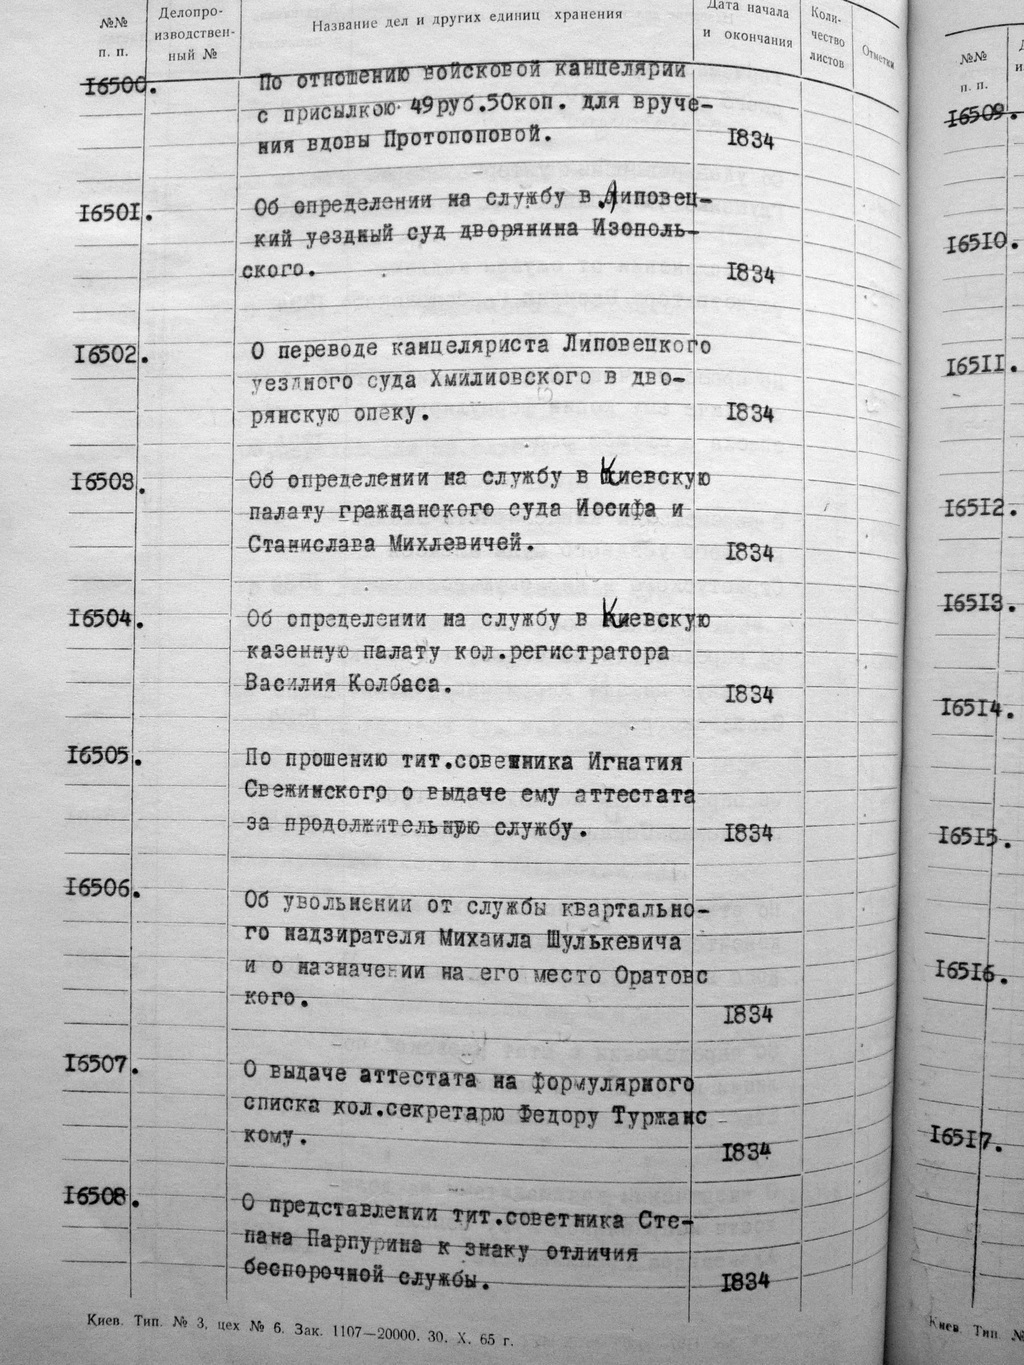 №№
п. п.
Делопро-
изводствен-
ный №
Название дел и других единиц хранения
Дата начала
и окончания
Коли-
чество
листов
Отметки
I6500.
По отношению войсковой канцелярии
с присылкою 49руб.50коп. для вруче-
ния вдовы Протопоповой.
I834
I650I.
Об определении на службу в Липовец-
кий уездный суд дворянина Изополь-
ского.
I834
I6502.
О переводе канцеляриста Липовецкого
уездного суда Хмилиовского в дво-
рянскую опеку.
I834
I6503.
Об определении на службу в Киевскую
палату гражданского суда Иосифа и
Станислава Михлевичей.
I834
I6504.
Об определении на службу в Киевскую
казенную палату кол.регистратора
Василия Колбаса.
I834
I6505.
По прошению тит.советника Игнатия
Свежинского о выдаче ему аттестата
за продолжительную службу.
I834
I6506.
Об увольнении от службы квартально-
го надзирателя Михаила Шулькевича
и о назначении на его место Оратовс
кого.
I834
I6507.
О выдаче аттестата на формулярного
списка кол.секретарю Федору Туржанс
кому.
I834
I6508.
О представлении тит.советника Сте-
пана Парпурина к знаку отличия
беспорочной службы.
I834
Киев. Тип. № 3, цех № 6. Зак. 1107—20000. 30. X. 65 г.
№№
п. п.
I6509.
I65I0.
I65II.
I65I2.
I65I3.
I65I4.
I65I5.
I65I6.
I65I7.
Киев. Тип. №